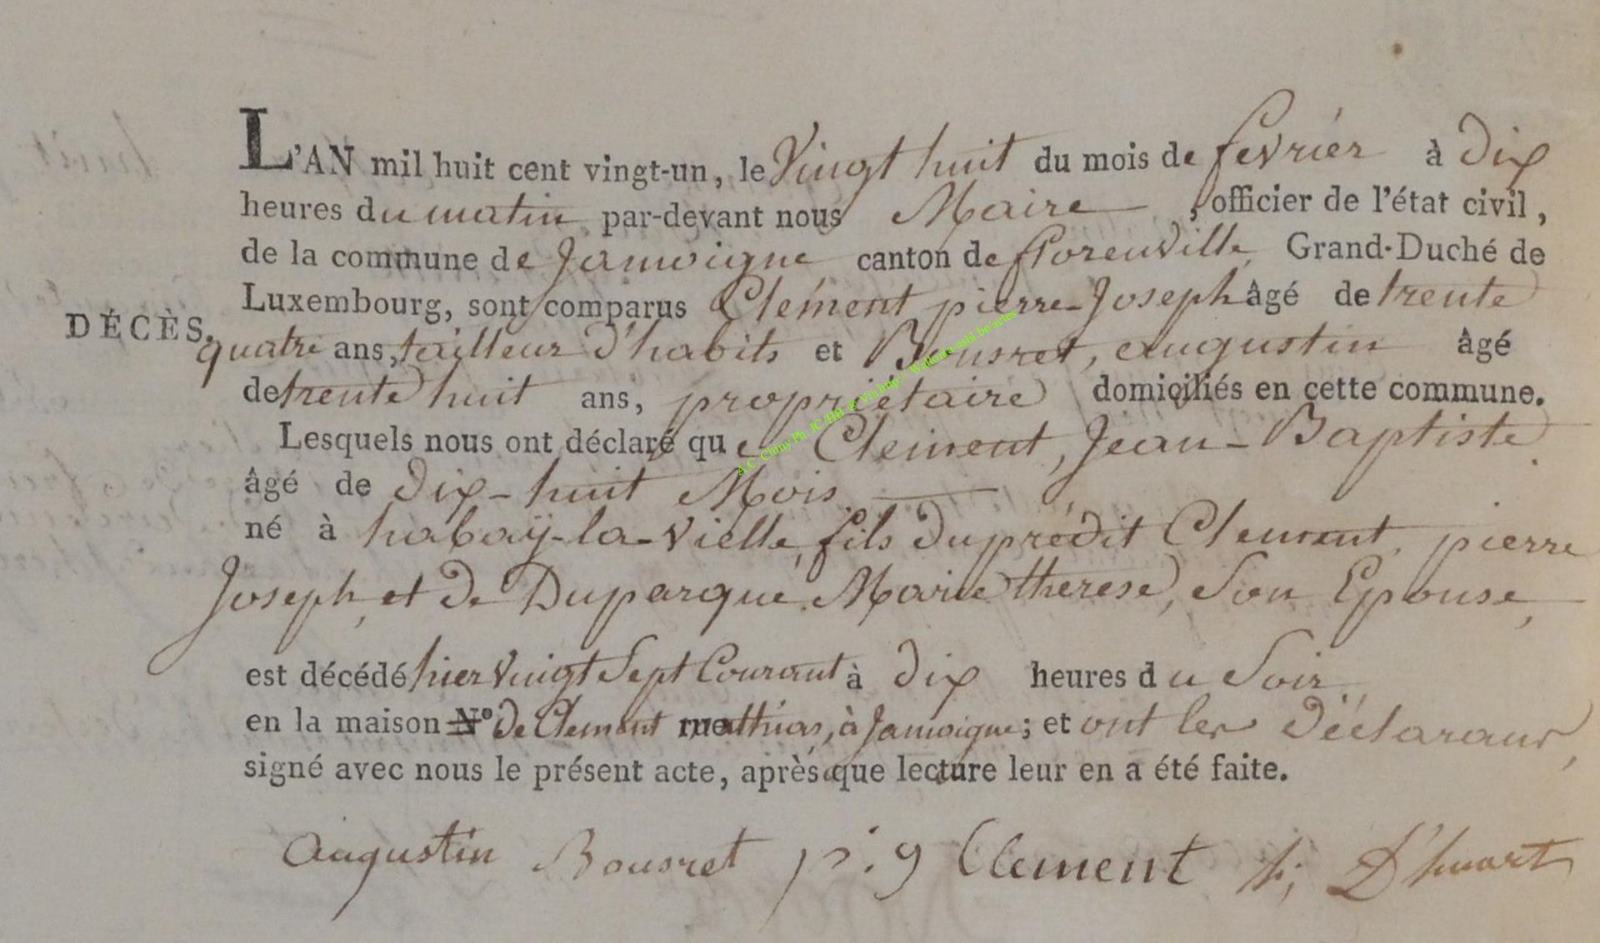 L'AN mil huit cent vingt-un, le Vingt huit du mois de fevrier à dix
heures du matin par-devant nous Maire, officier de l'état civil,
de la commune de Jamoigne canton de florenville Grand-Duché de
Luxembourg, sont comparus Clement pierre-Joseph âgé de trente
DÉCÈS.
quatre ans, tailleur d'habits et Bousret, augustin âgé
de trente huit ans, propriétaire domiciliés en cette commune.
Lesquels nous ont déclaré que Clement, Jean-Baptiste
âgé de dix-huit Mois
né à habaÿ-la-vielle, fils du prédit Clement, pierre
Joseph, et de Duparque, Marie therese, Son Epouse,
est décédé hier vingt Sept Courant à dix heures du Soir
en la maison N° de Clement mathias, à Jamoigne; et ont les déclarans,
signé avec nous le présent acte, après que lecture leur en a été faite.
Augustin Bousret p: j Clement h; D'huart